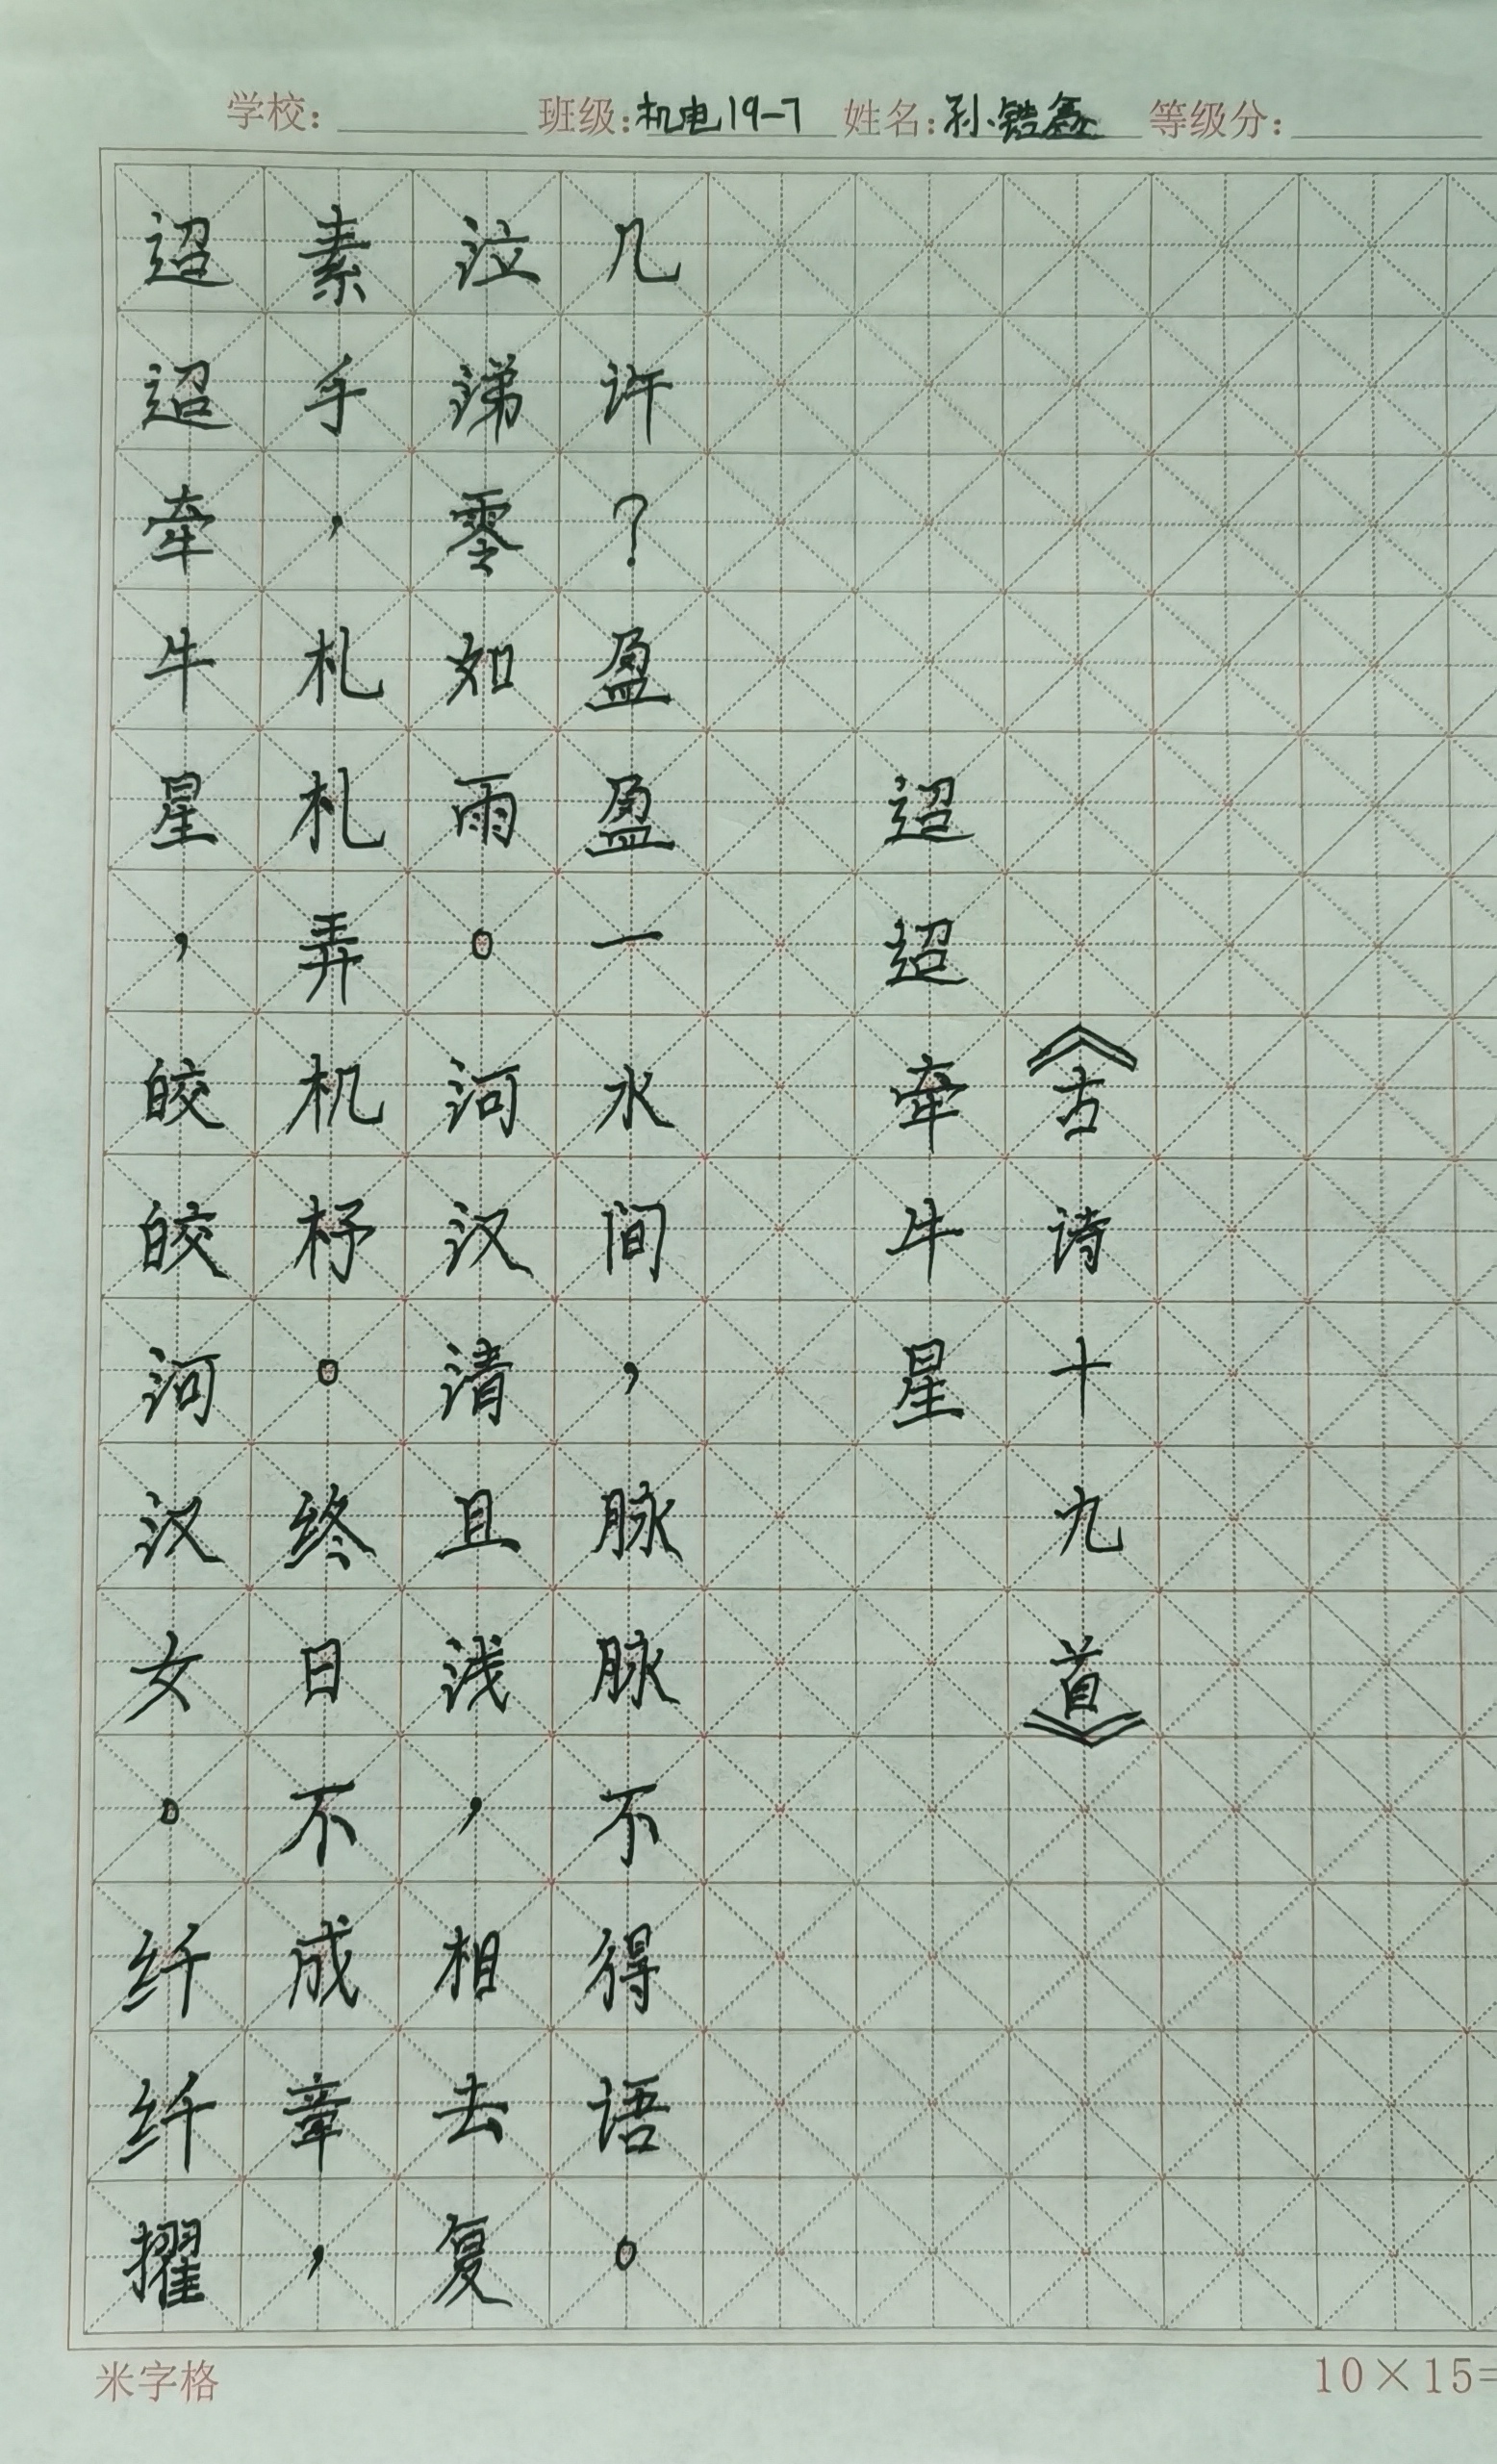 学校： 班级：机电19-7 姓名：孙 等级分：
迢迢牵牛星，皎皎河汉女。纤纤擢
素手，札札弄机杼。终日不成章，
泣涕零如雨。河汉清且浅，相去复
几许？盈盈一水间，脉脉不得语。
迢迢牵牛星
《古诗十九首》
米字格 10×15=